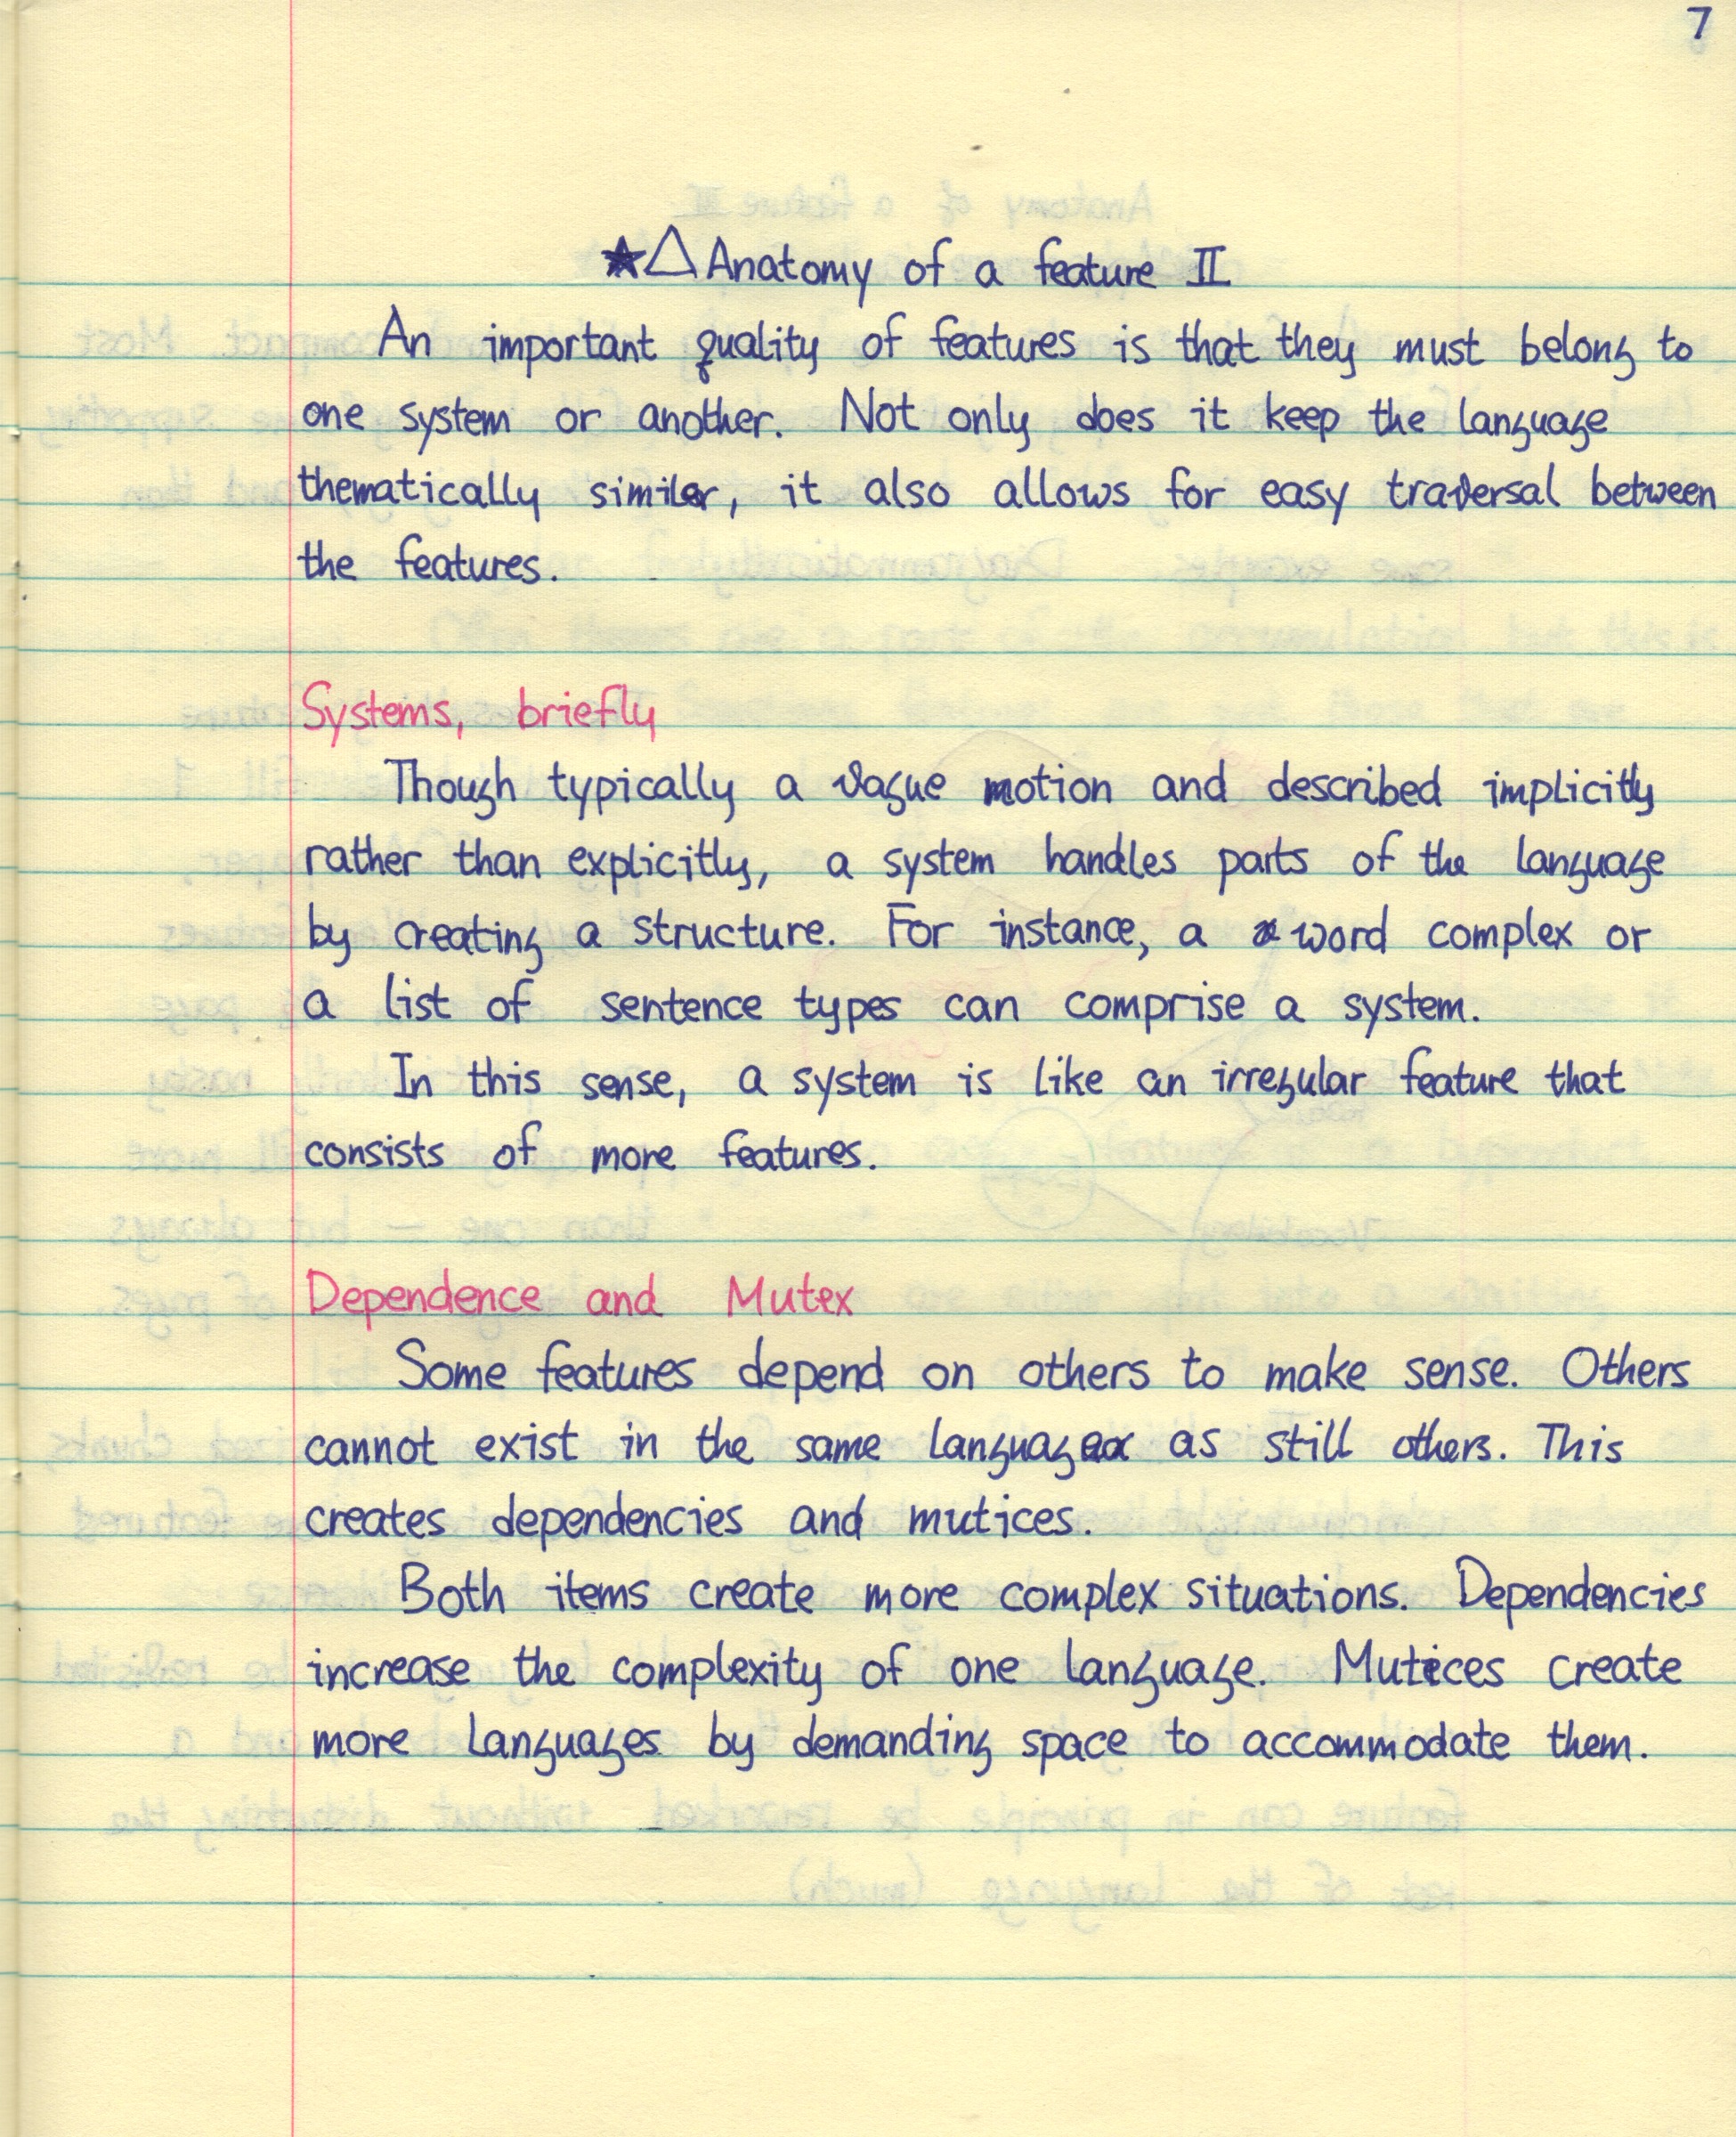 7
★△ Anatomy of a feature II
An important quality of features is that they must belong to
one system or another. Not only does it keep the language
thematically similar, it also allows for easy traversal between
the features.
Systems, briefly
Though typically a vague motion and described implicitly
rather than explicitly, a system handles parts of the language
by creating a structure. For instance, a word complex or
a list of sentence types can comprise a system.
In this sense, a system is like an irregular feature that
consists of more features.
Dependence and Mutex
Some features depend on others to make sense. Others
cannot exist in the same language as still others. This
creates dependencies and mutices.
Both items create more complex situations. Dependencies
increase the complexity of one language. Mutices create
more languages by demanding space to accommodate them.